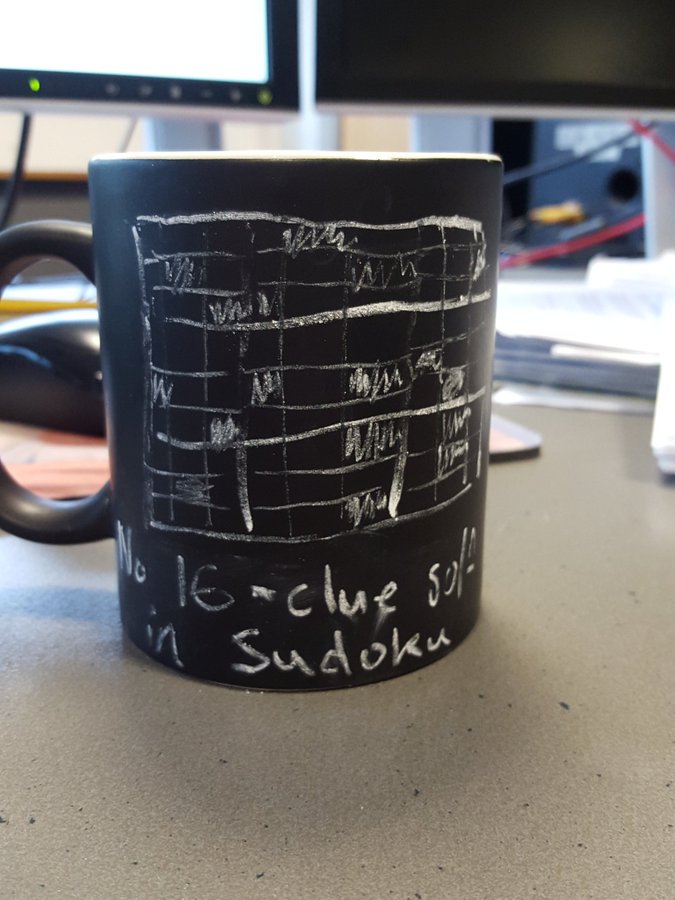 No 16-clue sol<u>n</u>
in Sudoku